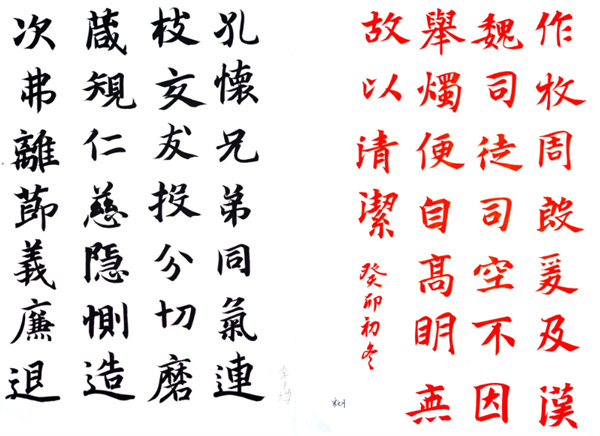 作牧周殷爰及漢
魏司徒司空不因
舉燭便自髙明無
故以清潔
癸卯初冬
孔懷兄弟同氣連
枝交友投分切磨
葴規仁慈隱惻造
次弗離節義廉退